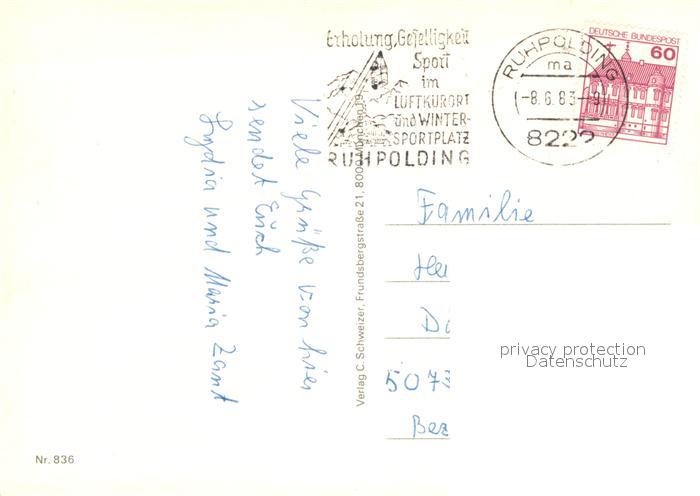 Erholung, Geselligkeit
Sport
im
LUFTKURORT
und WINTER-
SPORTPLATZ
RUHPOLDING
RUHPOLDING
ma
-8.6.83-9
8222
DEUTSCHE BUNDESPOST
60
Viele Grüße von hier
sendet Euch
Lydia und Maria Zant
Verlag C. Schweizer, Frundsbergstraße 21, 8000 München 19
Familie
He
D
507
Bez
privacy protection
Datenschutz
Nr. 836